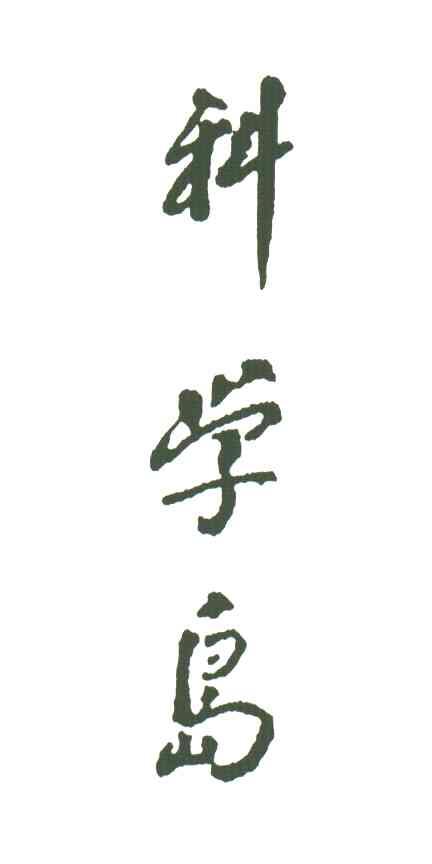 科学島